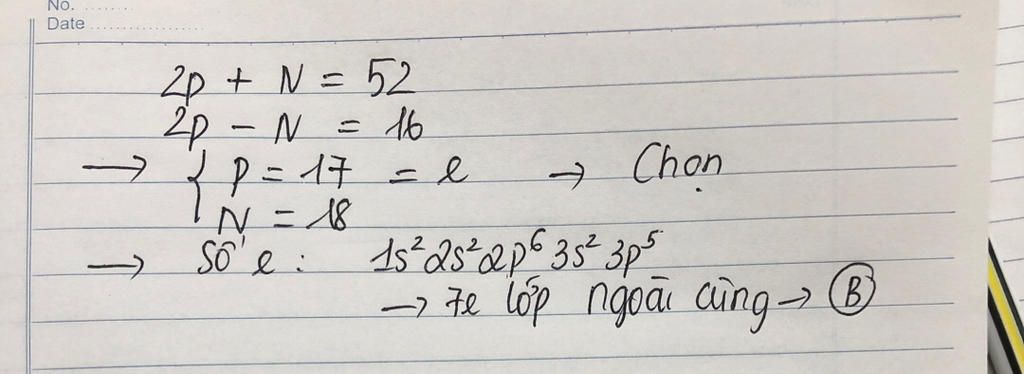 No. ........
Date ..................
2p + N = 52
2p - N = 16
→ { p = 17 = e → Chọn
N = 18
→ Số e : 1s² 2s² 2p⁶ 3s² 3p⁵
→ 7e lớp ngoài cùng → Ⓑ